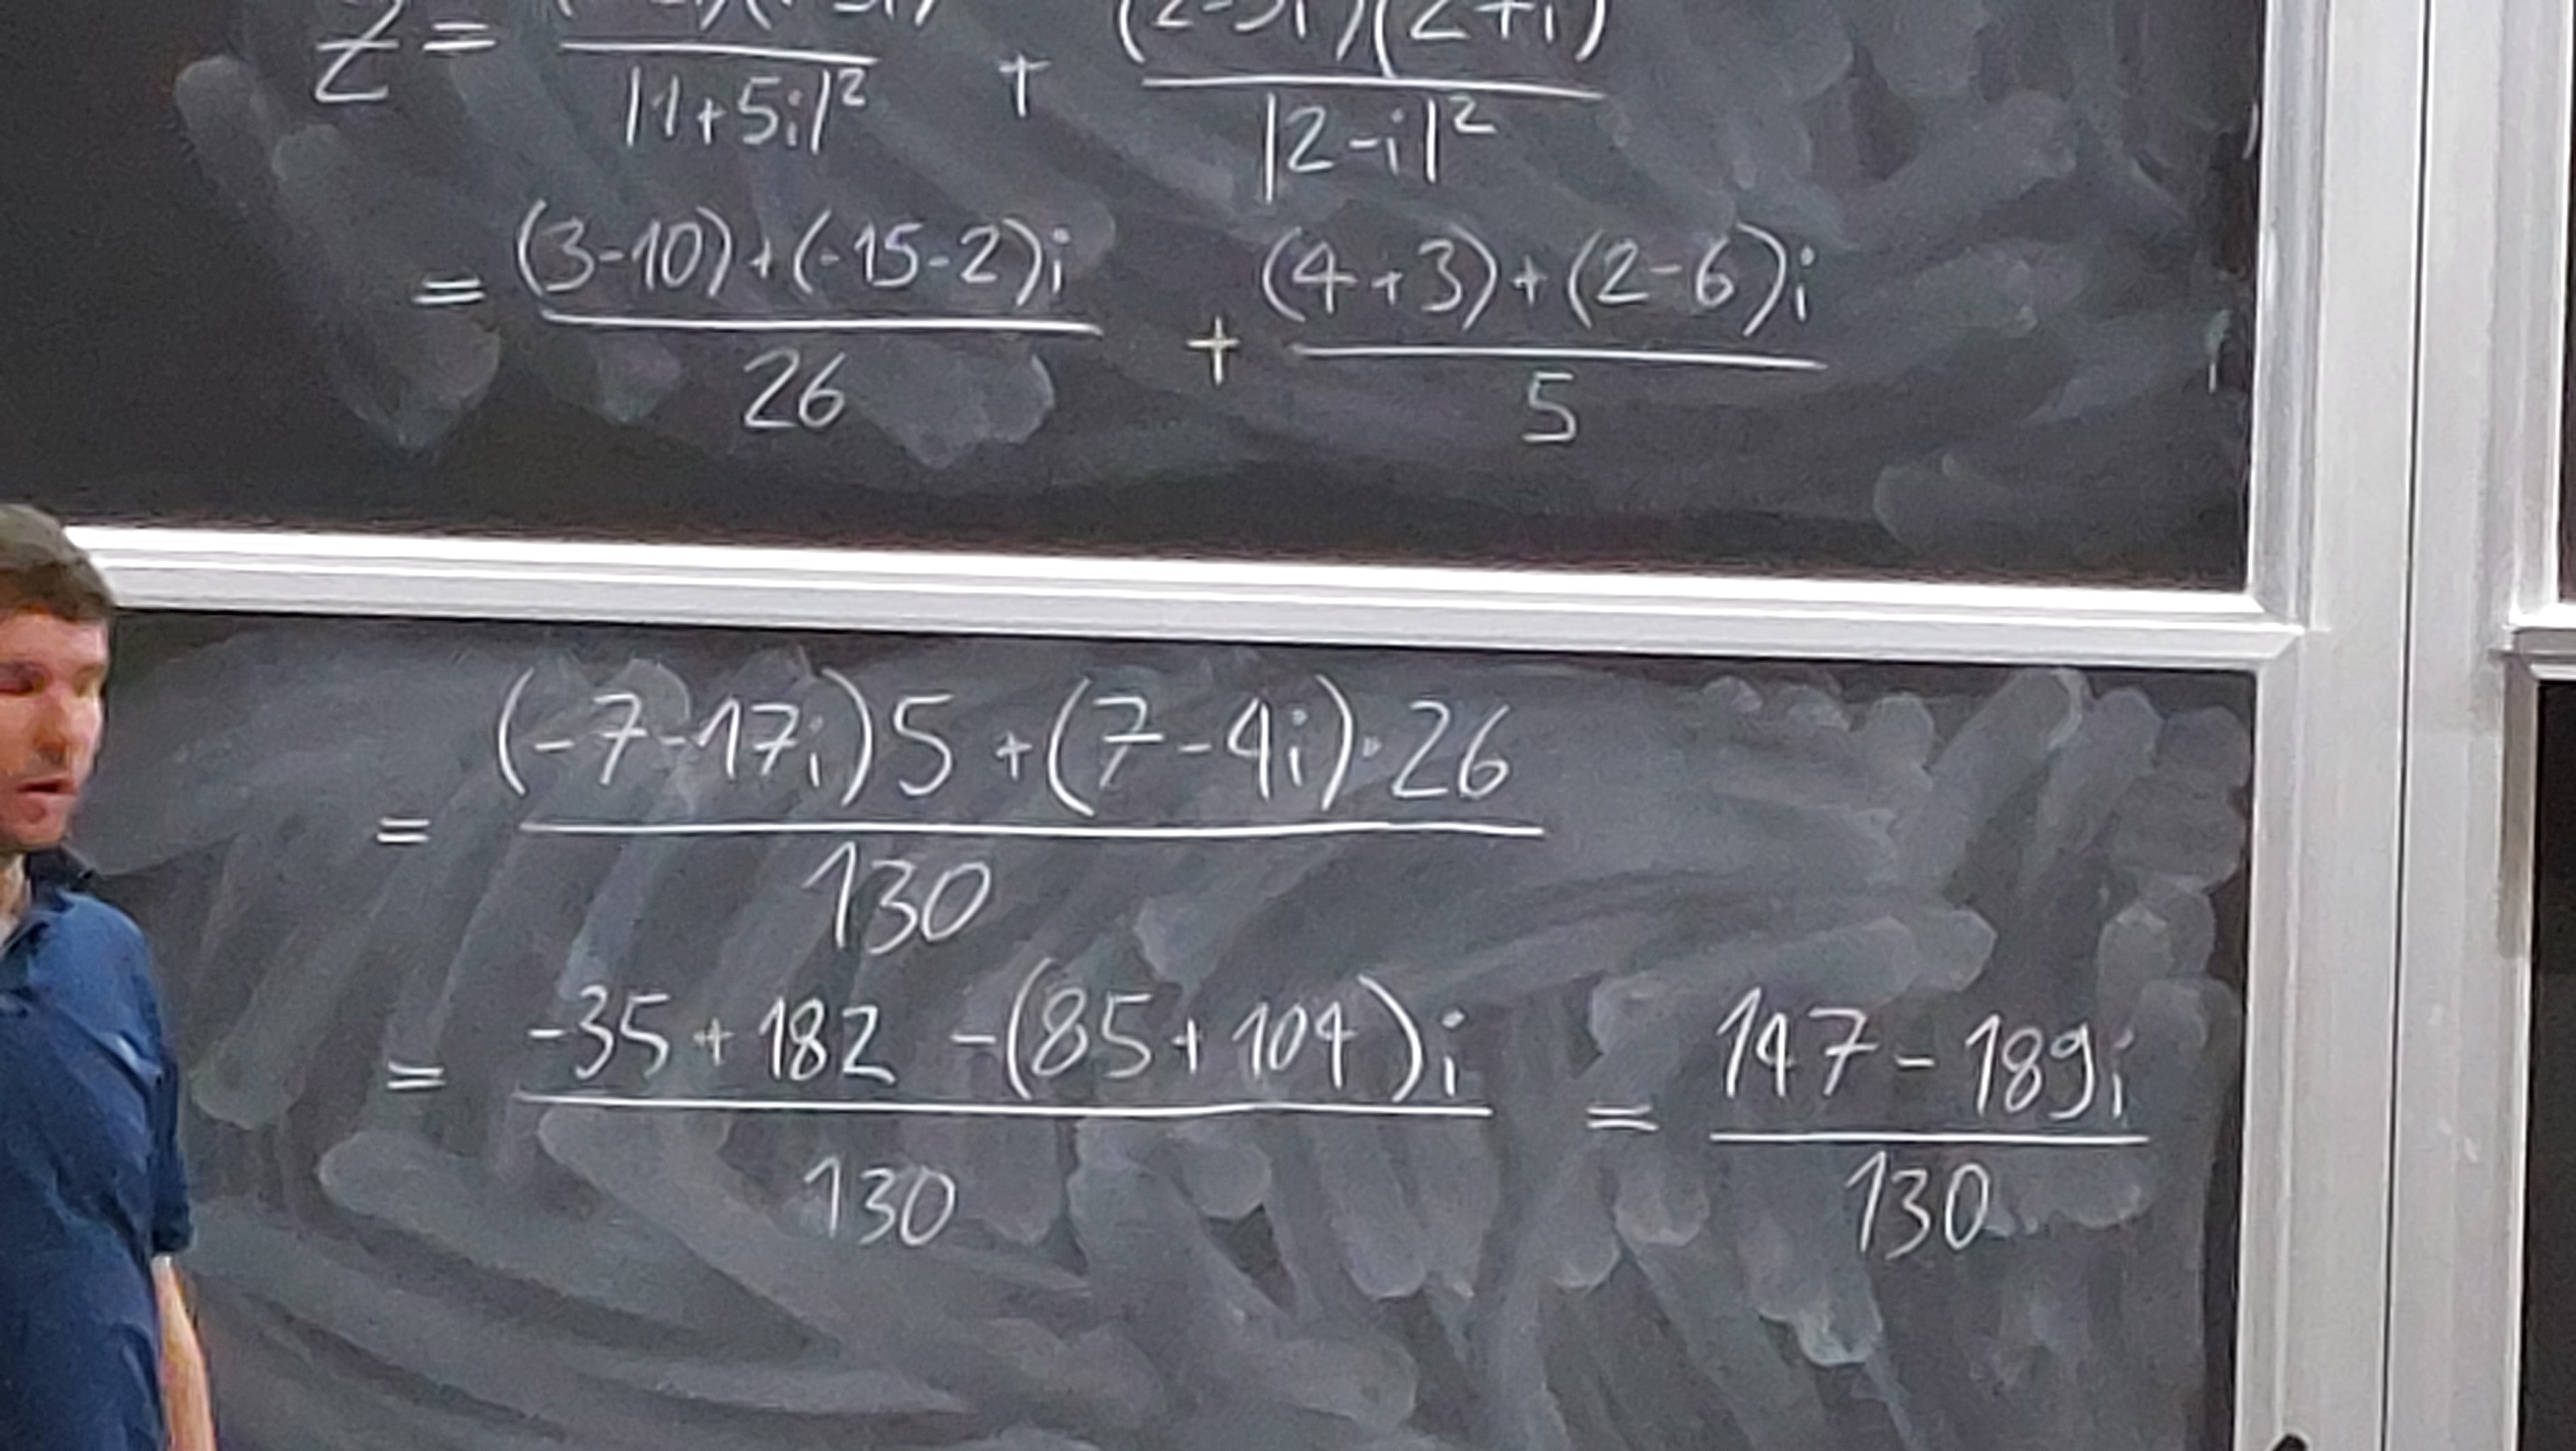 z = / |1+5i|² + (2-3i)(2+i) / |2-i|²
= (3-10)+(-15-2)i / 26 + (4+3)+(2-6)i / 5
= (-7-17i)5+(7-4i)·26 / 130
= -35+182 -(85+104)i / 130 = 147-189i / 130